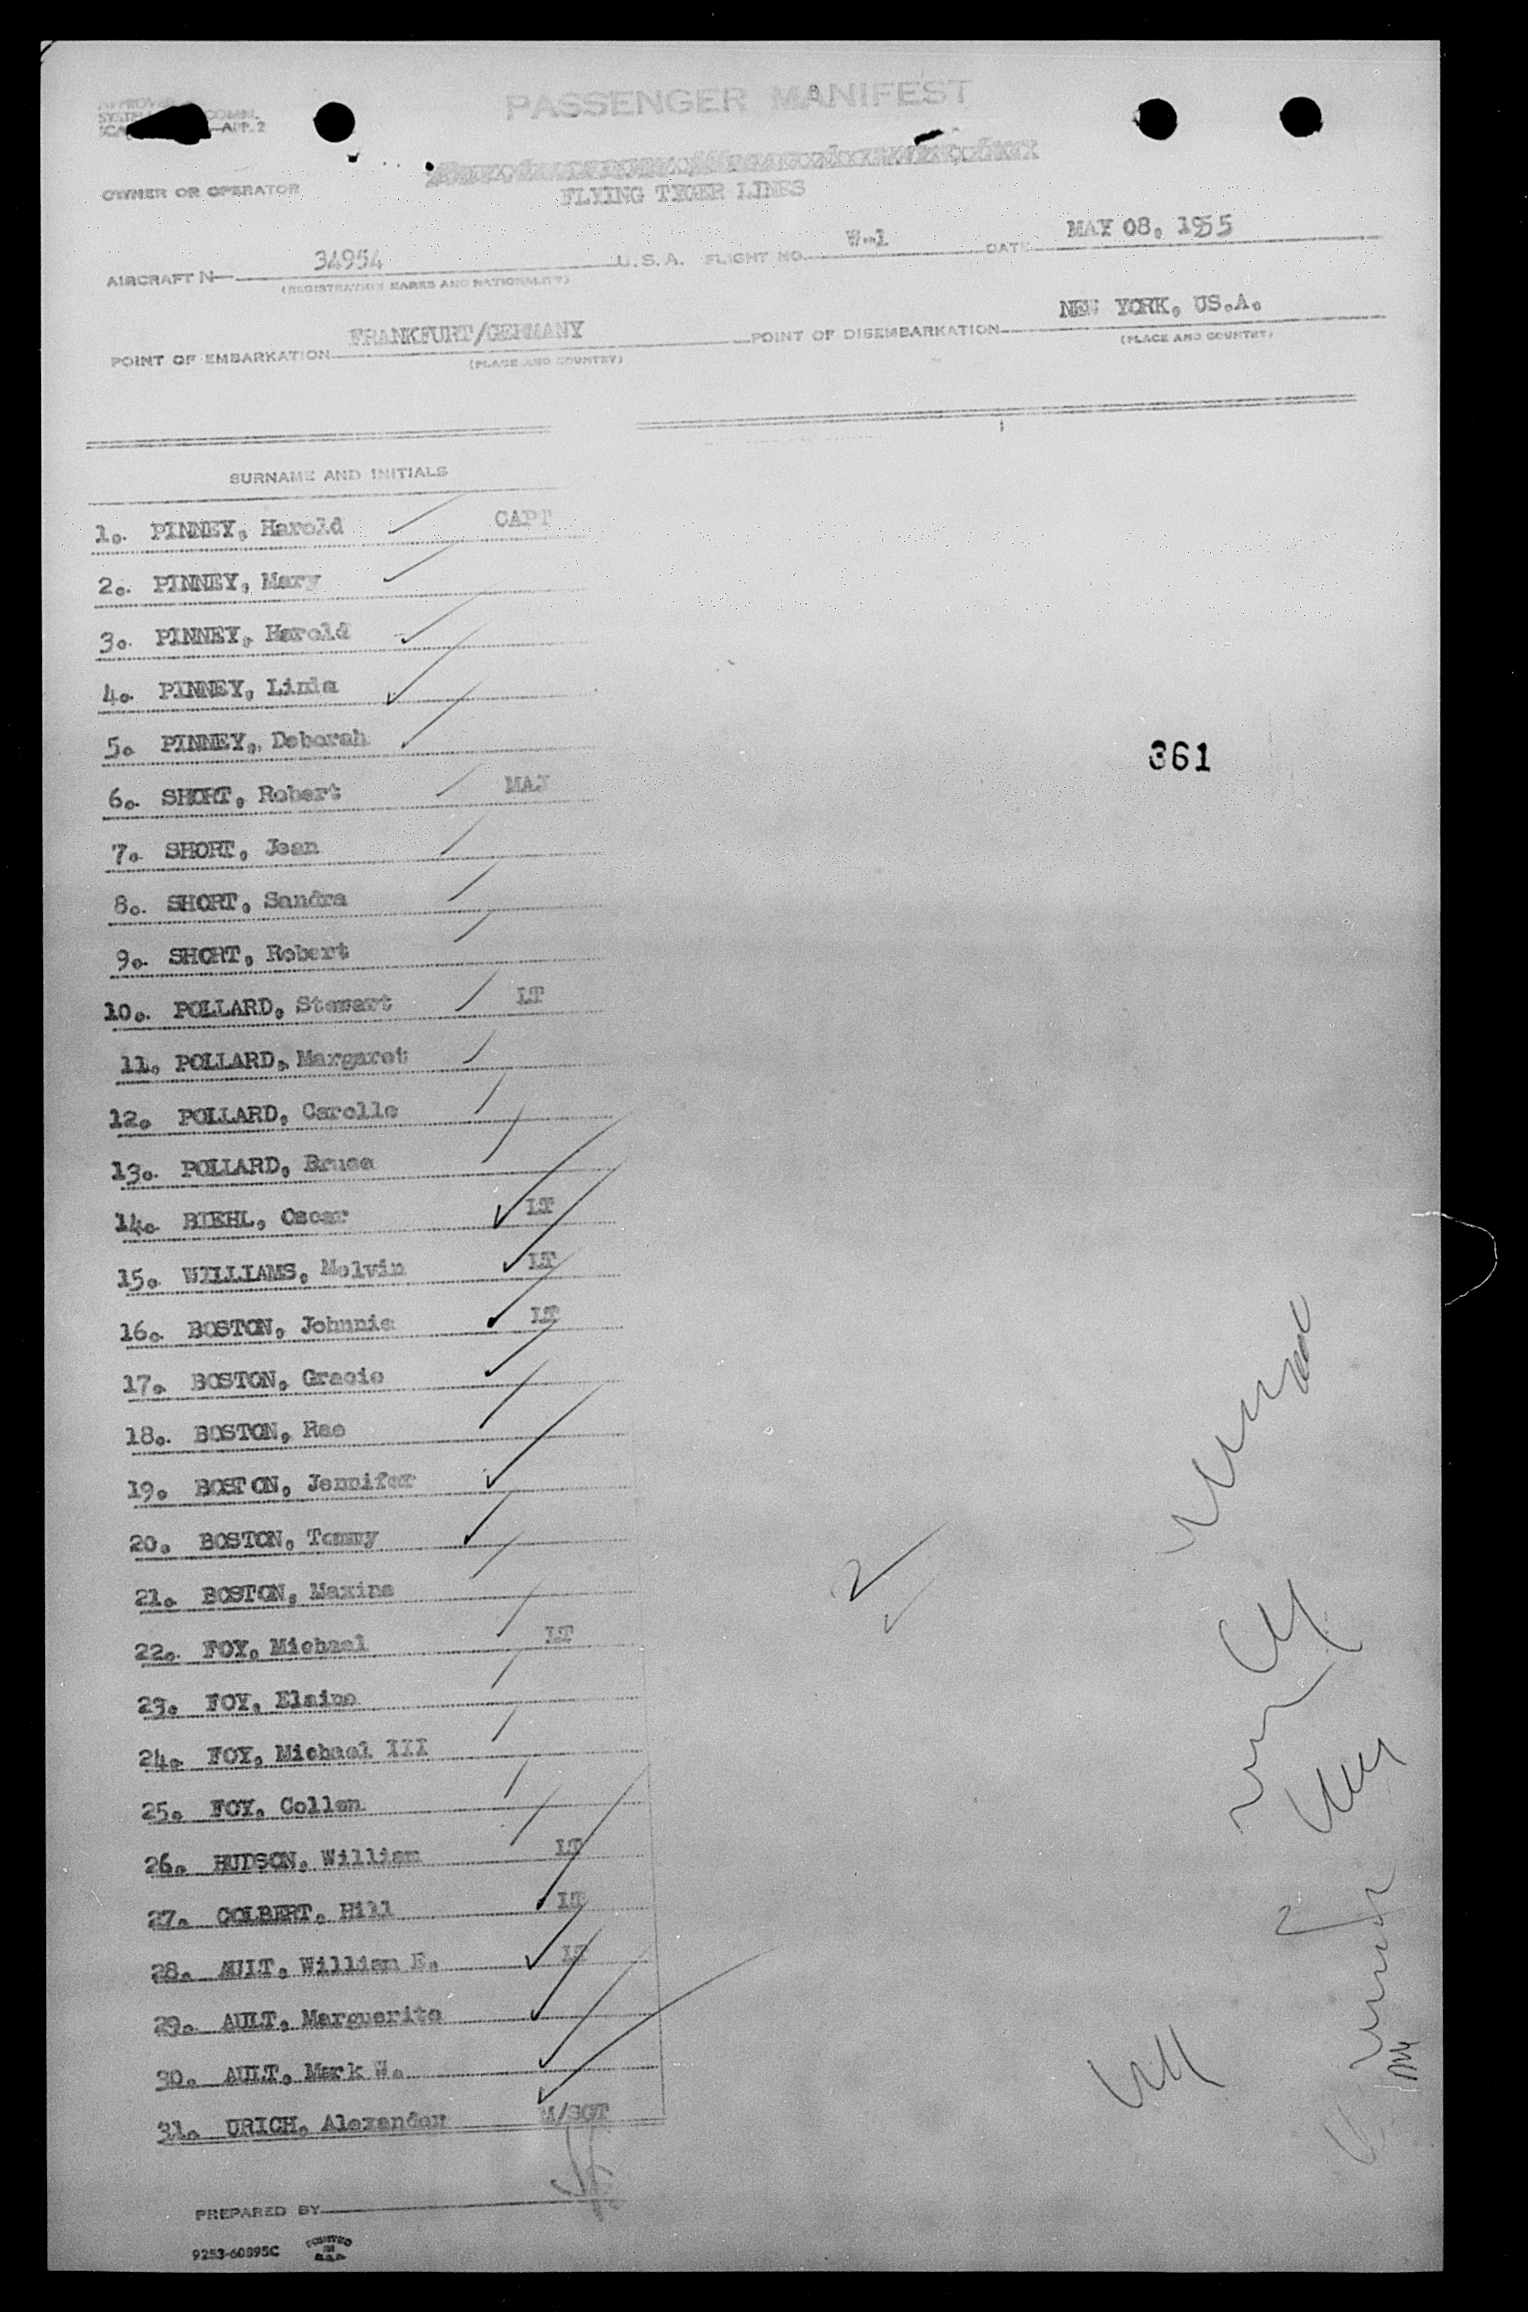 PASSENGER MANIFEST
APP. 2
OWNER OR OPERATOR
FLYING TIGER LINES
AIRCRAFT N— 34954 U.S.A. FLIGHT NO. W-1 DATE MAY 08, 1955
(REGISTRATION MARKS AND NATIONALITY)
POINT OF EMBARKATION FRANKFURT/GERMANY POINT OF DISEMBARKATION NEW YORK, US.A.
(PLACE AND COUNTRY) (PLACE AND COUNTRY)
SURNAME AND INITIALS
1. PINNEY, Harold CAPT
2. PINNEY, Mary
3. PINNEY, Harold
4. PINNEY, Linda
5. PINNEY, Deborah
361
6. SHORT, Robert MAJ
7. SHORT, Jean
8. SHORT, Sandra
9. SHORT, Robert
10. POLLARD, Stewart LT
11. POLLARD, Margaret
12. POLLARD, Carolle
13. POLLARD, Bruce
14. BIEHL, Oscar LT
15. WILLIAMS, Melvin LT
16. BOSTON, Johnnie LT
17. BOSTON, Gracie
18. BOSTON, Rae
19. BOSTON, Jennifer
20. BOSTON, Tommy
21. BOSTON, Maxine
22. FOX, Michael LT
23. FOX, Elaine
24. FOX, Michael III
25. FOX, Collen
26. HUDSON, William LT
27. COLBERT, Hill LT
28. AULT, William E. LT
29. AULT, Marguerite
30. AULT, Mark W.
31. URICH, Alexander M/SGT
PREPARED BY
9253-60895C PRINTED IN U.S.A.